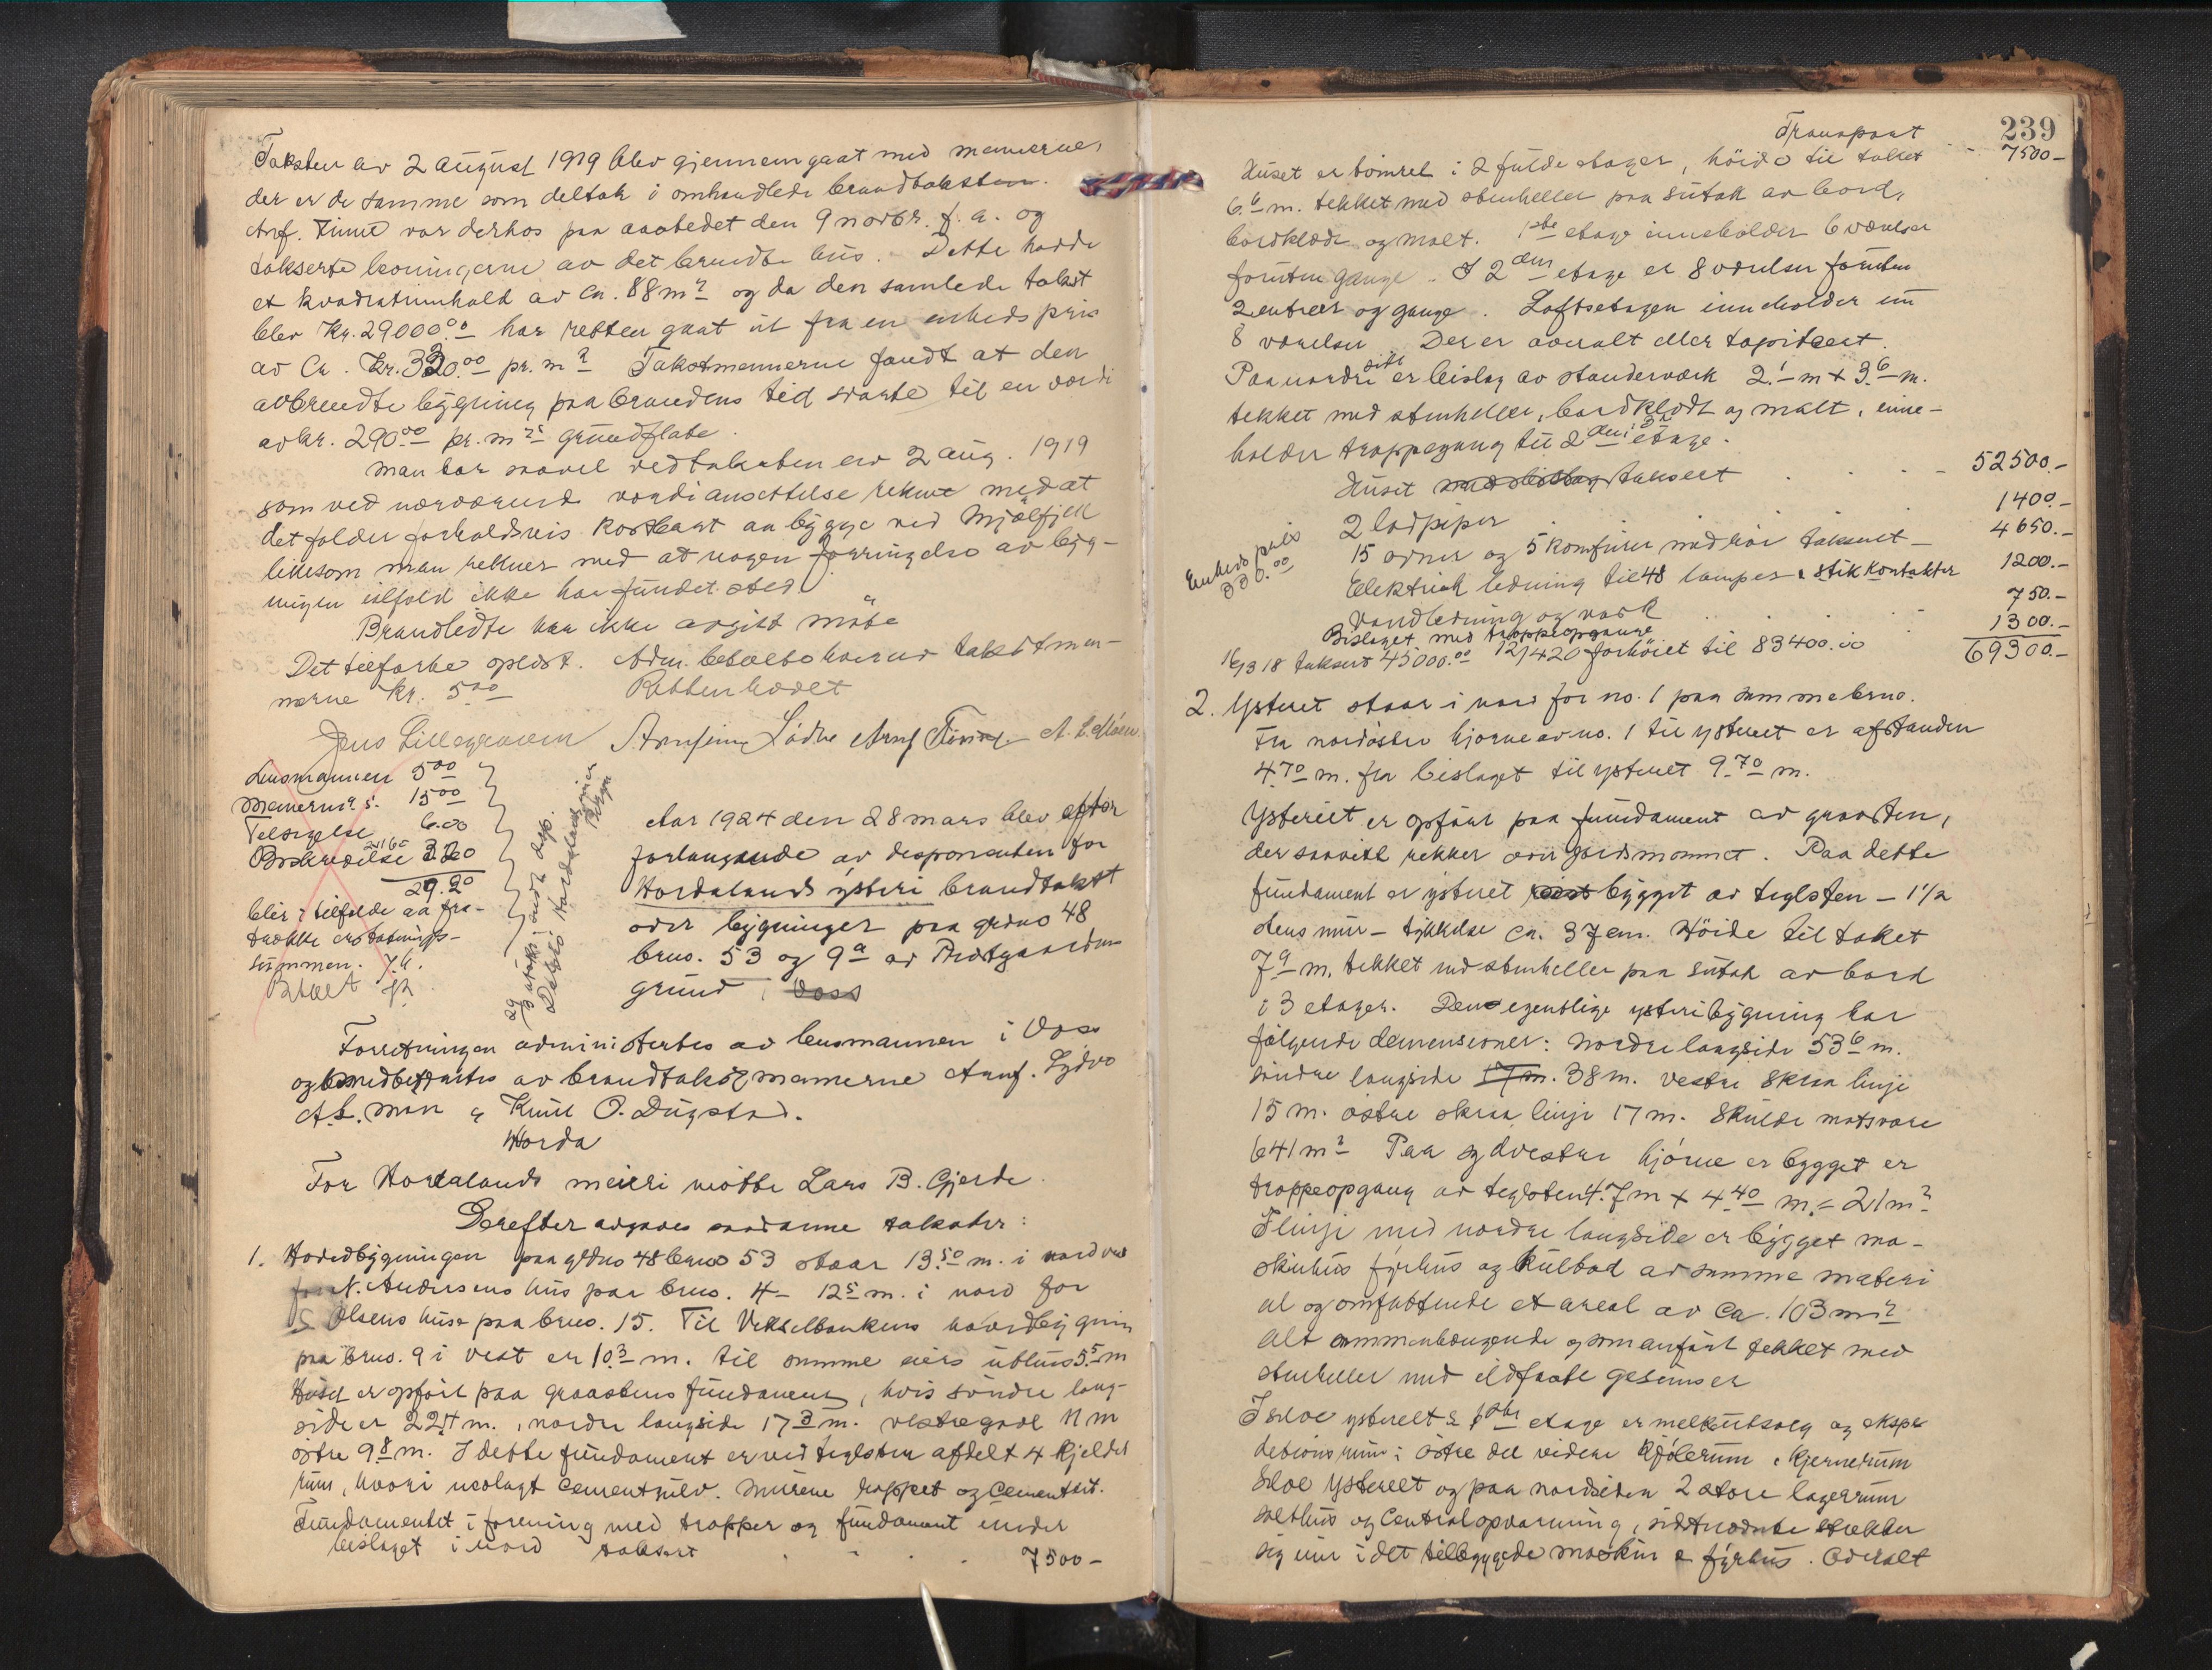 Taksten av 2 august 1919 blev gjennemgaat med mennerne,
der er de samme som deltok i omhandlede brandtaksten.
Anf. Finne var derhos paa aastedet den 9 novbr. f. a. og
takserte levningerne av det brendte hus. Dette hadde
et kvadratinnhold av ca. 88 m² og da den samlede takst
blev Kr. 29000.00 har retten gaat ut fra en enhedspris
av Ca. Kr. 330.00 pr. m² Takstmennerne fandt at den
avbrendte bygning paa brandens tid svarte til en værdi
av kr. 290.00 pr. m² grundflate.
Man har saavel ved taksten av 2 aug. 1919
som ved nærværende værdiansettelse reknet med at
det falder forholdsvis kostbart aa bygge ved Mjølfjell
likesom man rekner med at nogen forringelse av byg-
ningen ialfald ikke har fundet sted.
Brandlidte har ikke avgitt møte
Det tilførte oplæst. Adm. betalte hver av takstmen-
nerne kr. 5.00 Retten hævet
Jens Lillegraven Arnfinn Lødve Arnf Finne A. L. Moen
Lensmannen 5.00
Mennerne 15.00
Telsigelse 6.00
Beskrivelse 3.20
29.20
blir i tilfælde aa fra-
trække erstatnings-
summen. J.L.
Betalt JL
Aar 1924 den 28 mars blev efter
forlangende av disponenten for
Hordalands ysteri brandtakst
over bygninger paa grdno 48
brno. 53 og 9a av Prestgaardens
grund i Voss
Forretningen administertes av lensmannen i Voss
og medbetjentes av brandtakstmennerne Arnf. Lydvo
A. L. Moen & Knut O. Dugstad.
Horda
For Hordalands meieri møtte Lars B. Gjerde.
Derefter avgaves saadanne takster:
1. Hovedbygningen paa grdno 48 brno 53 staar 13.50 m. i nord
for N. Andersens hus paa brno. 4 – 12.5 m. i nord for
Olsens huse paa brno. 15. Til Vekselbankens hovedbygning
paa brno. 9 i vest er 10.3 m. til samme eiers uthus 5.5 m
Huset er opført paa graastens fundament, hvis søndre lang-
side er 22.4 m., nordre langside 17.3 m. vestre gavl 11 m
østre 9.8 m. I dette fundament er ved teglsten afdelt 4 kjelder
rum, hvori nedlagt cementgulv. Murene rappet og cementert.
Fundamentet i forening med trapper og fundament under
beislaget i nord taksert 7500 –
239
Transport 7500 –
Huset er tømret i 2 fulde etager, høide til taket
6.6 m. tekket med stenheller paa sutak av bord,
bordklædt og malt. 1ste etage inneholder 6 værelser
foruten gange. I 2den etage er 8 værelser foruten
2 entreer og gange. Loftsetagen inneholder nu
8 værelser. Der er overalt eller tapitsert.
Paa nordre side er beislag av standerværk 2.1 m x 3.6 m.
tekket med stenheller, bordklædt og malt, inne-
holder trappegang til 2den etage.
Huset med beislag taksert 52500.–
2 ladpiper 1400.–
Enheds pris
330.00
15 ovner og 5 komfurer med rør taksert – 4650.–
Elektrisk ledning til 48 lamper & stikkontakter 1200.–
Vandledning og vask 750.–
Bislaget med trappeopgange 1300.–
16/3 18 taksert 45000.00 12/4 20 forhøiet til 83400.00 69300.–
2. Ysteriet staar i nord for no. 1 paa samme brno.
Fra nordøstre hjørne av no. 1 til ysteriet er afstanden
4.70 m. fra beislaget til ysteriet 9.70 m.
Ysteriet er opført paa fundament av graasten,
der saavidt rekker over jordsmonnet. Paa dette
fundament er ysteriet bygget av teglsten – 1½
stens mur – tykkelse ca. 37 cm. Høide til taket
7.9 m. tekket med stenheller paa sutak av bord
i 3 etager. Den egentlige ysteribygning har
følgende demensioner: Nordre langside 53.6 m.
søndre langside 17 m. 38 m. vestre skraa linje
15 m. østre skraa linje 17 m. Skulde motsvare
641 m² Paa sydvestre hjørne er bygget er
trappeopgang av teglsten 4.7 m x 4.40 m. = 21 m²
I linje med nordre langside er bygget ma-
skinhus fyrhus og kulbod av samme materi
al og omfattende et areal av ca. 103 m²
Alt sammenhængende og som anført tekket med
stenheller med ildfaste gesimser
I selve ysteriet's 1ste etage er melkeutsalg og ekspe
detionsrum i østre del videre kjølerum, kjernerum
selve ysteriet og paa nordsiden 2 store lagerrum
salthus og centralopvarming, sidstnævnte strekker
sig inn i det tilbyggede maskin & fyrhus. Overalt